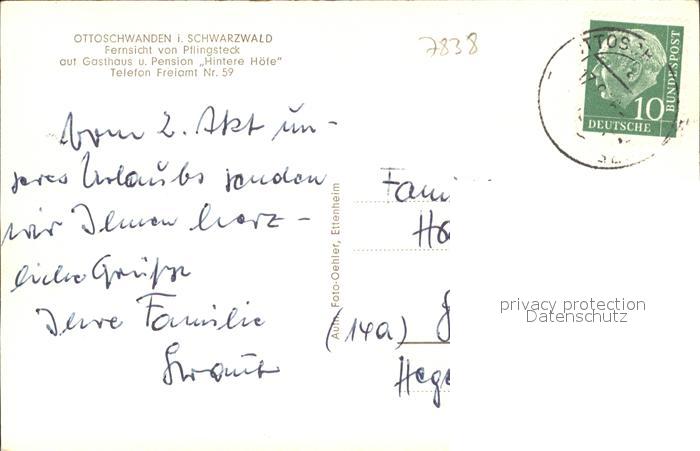 OTTOSCHWANDEN i. SCHWARZWALD
Fernsicht von Pflingsteck
auf Gasthaus u. Pension „Hintere Höfe"
Telefon Freiamt Nr. 59
7838
OTTOSCH
10
DEUTSCHE
BUNDESPOST
Vom 2. Akt un-
seres Urlaubs senden
wir Ihnen herz-
liche Grüße
Ihre Familie
Fami
Ho
(14a)
Hege
Foto-Oehler, Ettenheim
privacy protection
Datenschutz